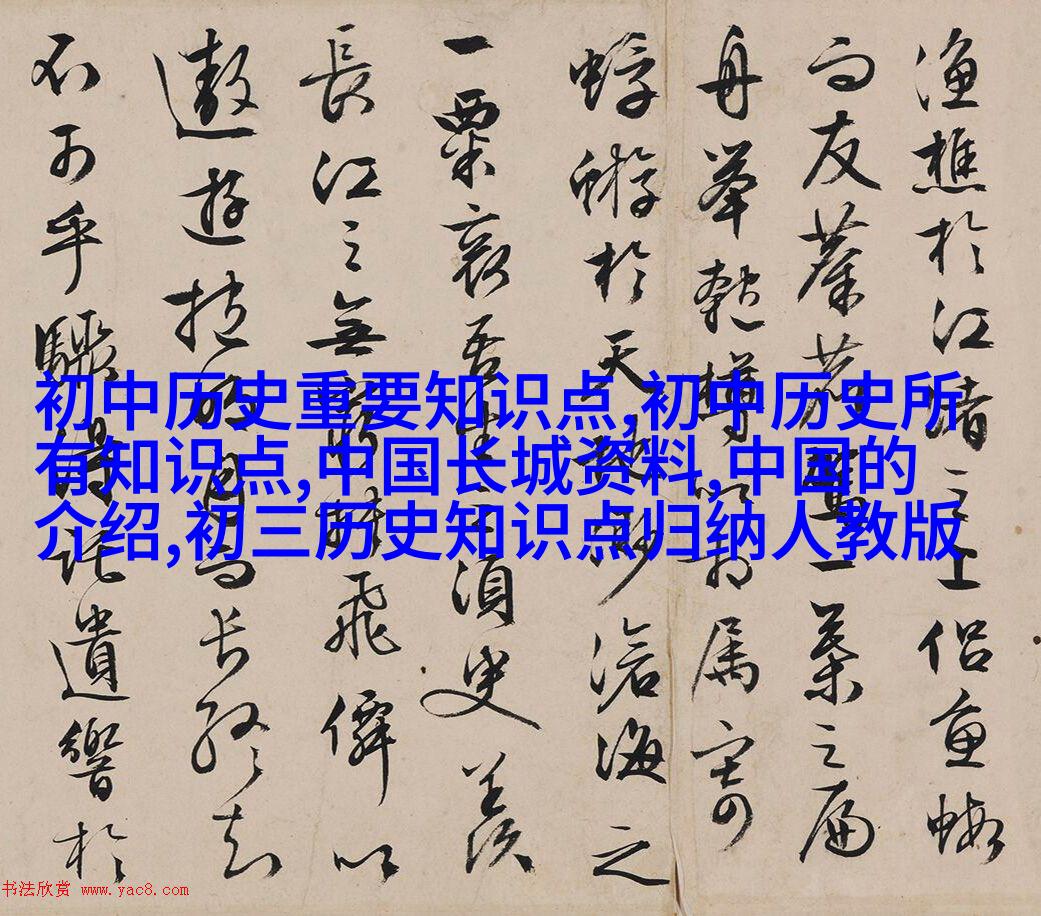 漁樵於江渚之上侣魚蝦
而友麋鹿駕一葉之扁
舟舉匏樽以相属寄
蜉蝣於天地渺滄海之
一粟哀吾生之須臾羡
長江之無窮挾飛僊以
遨遊抱明月而長終知
不可乎驟得託遺響於
初中历史重要知识点,初中历史所
有知识点,中国长城资料,中国的
介绍,初三历史知识点归纳人教版
书法欣赏 www.yac8.com